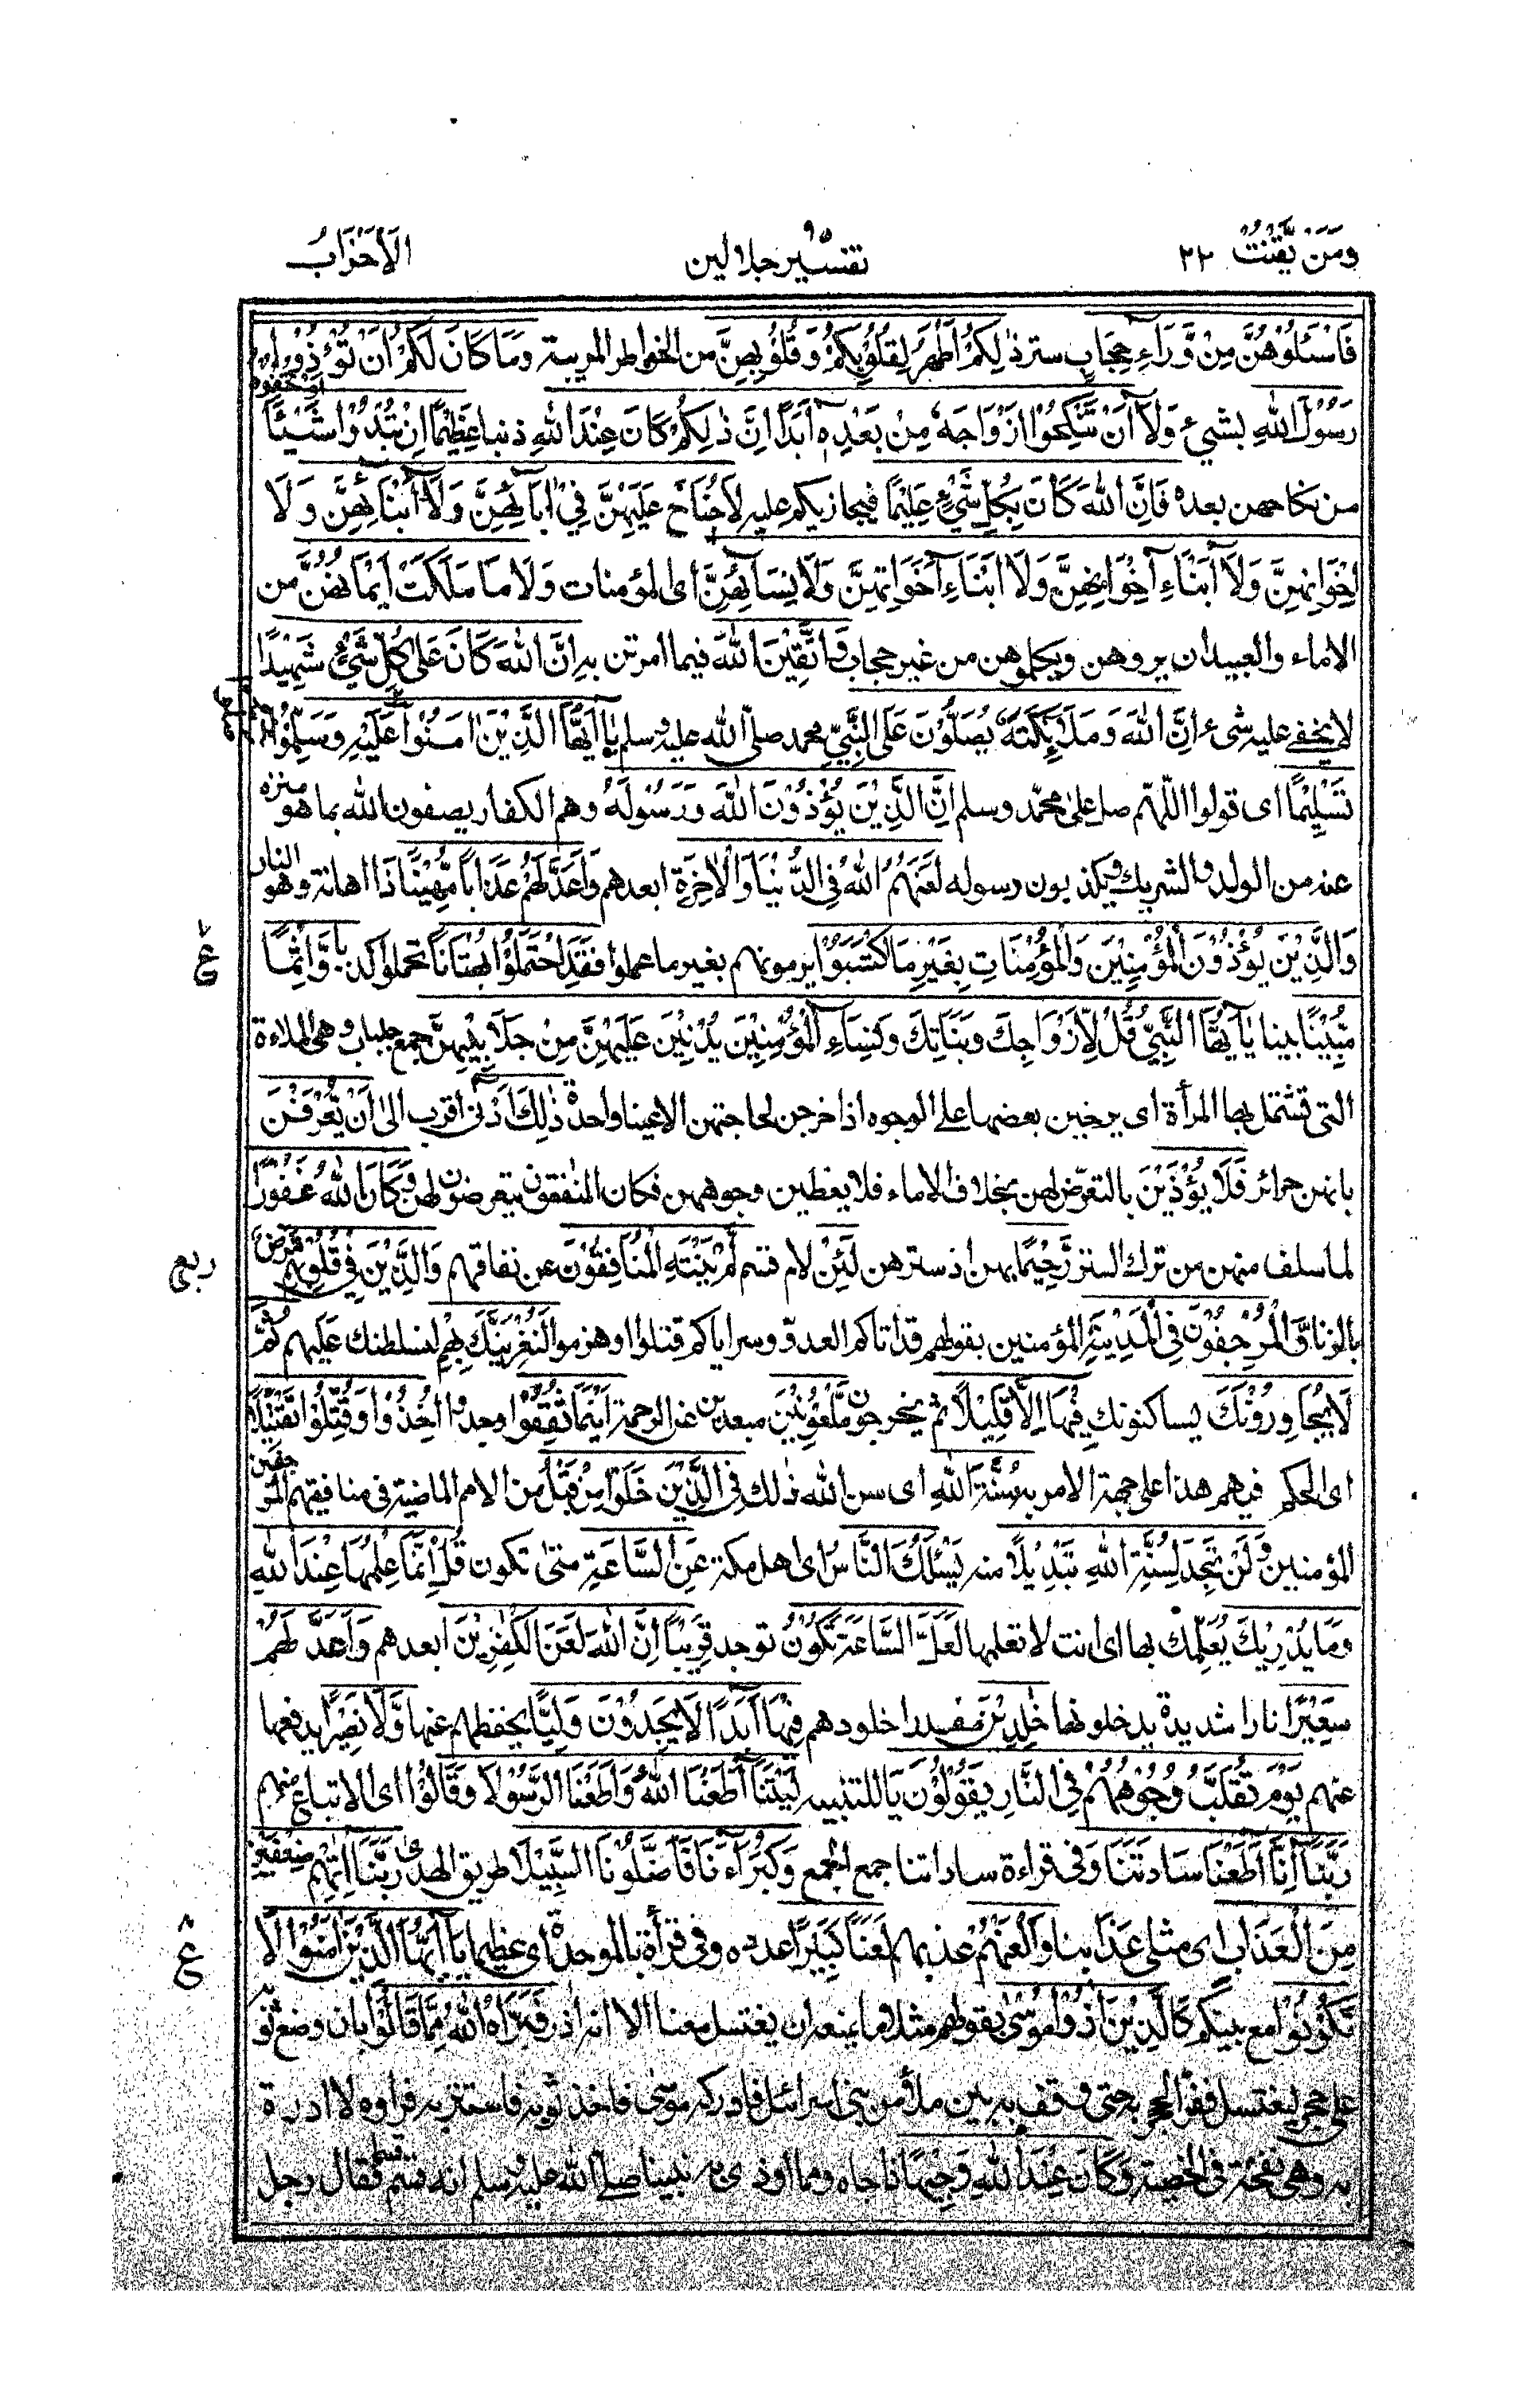 ومن يقنت ٢٢
تفسير جلالين
الأحزاب
فَاسْئَلُوْهُنَّ مِنْ وَّرَآءِ حِجَابٍ ستر ذٰلِكُمْ اَطْهَرُ لِقُلُوْبِكُمْ وَقُلُوْبِهِنَّ من الخواطر المريبة وَمَا كَانَ لَكُمْ اَنْ تُؤْذُوْا
رَسُوْلَ اللّٰهِ بشيء وَلَآ اَنْ تَنْكِحُوْٓا اَزْوَاجَهٗ مِنْ بَعْدِهٖٓ اَبَدًا اِنَّ ذٰلِكُمْ كَانَ عِنْدَ اللّٰهِ ذنبا عَظِيْمًا اِنْ تُبْدُوْا شَيْئًا اَوْ تُخْفُوْهُ
من نكاحهن بعده فَاِنَّ اللّٰهَ كَانَ بِكُلِّ شَيْءٍ عَلِيْمًا فيجازيكم عليه لَا جُنَاحَ عَلَيْهِنَّ فِيْٓ اٰبَآئِهِنَّ وَلَآ اَبْنَآئِهِنَّ وَلَآ
اِخْوَانِهِنَّ وَلَآ اَبْنَآءِ اِخْوَانِهِنَّ وَلَآ اَبْنَآءِ اَخَوَاتِهِنَّ وَلَا نِسَآئِهِنَّ اى المؤمنات وَلَا مَا مَلَكَتْ اَيْمَانُهُنَّ من
الاماء والعبيد ان يروهن ويكلموهن من غير حجاب وَاتَّقِيْنَ اللّٰهَ فيما امرتن به اِنَّ اللّٰهَ كَانَ عَلٰى كُلِّ شَيْءٍ شَهِيْدًا
لا يخفى عليه شىء اِنَّ اللّٰهَ وَمَلٰٓئِكَتَهٗ يُصَلُّوْنَ عَلَى النَّبِيِّ محمد صلى الله عليه وسلم يٰٓاَيُّهَا الَّذِيْنَ اٰمَنُوْا صَلُّوْا عَلَيْهِ وَسَلِّمُوْا
تَسْلِيْمًا اى قولوا اللّٰهم صل على محمد وسلم اِنَّ الَّذِيْنَ يُؤْذُوْنَ اللّٰهَ وَرَسُوْلَهٗ وهم الكفار يصفون الله بما هو منزه
عنه من الولد والشريك ويكذبون رسوله لَعَنَهُمُ اللّٰهُ فِي الدُّنْيَا وَالْاٰخِرَةِ ابعدهم وَاَعَدَّ لَهُمْ عَذَابًا مُّهِيْنًا ذا اهانة وهو النار
وَالَّذِيْنَ يُؤْذُوْنَ الْمُؤْمِنِيْنَ وَالْمُؤْمِنَاتِ بِغَيْرِ مَا اكْتَسَبُوْا يرمونهم بغير ما عملوا فَقَدِ احْتَمَلُوْا بُهْتَانًا تحملوا كذبا وَّاِثْمًا
ع
مُّبِيْنًا بينا يٰٓاَيُّهَا النَّبِيُّ قُلْ لِّاَزْوَاجِكَ وَبَنَاتِكَ وَنِسَآءِ الْمُؤْمِنِيْنَ يُدْنِيْنَ عَلَيْهِنَّ مِنْ جَلَابِيْبِهِنَّ جمع جلباب وهى الملاءة
التى تشتمل بها المرأة اى يرخين بعضها على الوجوه اذا خرجن لحاجتهن الا عينا واحدة ذٰلِكَ اَدْنٰى اقرب الى اَنْ يُّعْرَفْنَ
بانهن حرائر فَلَا يُؤْذَيْنَ بالتعرض لهن بخلاف الاماء فلا يغطين وجوههن فكان المنٰفقون يتعرضون لهن وَكَانَ اللّٰهُ غَفُوْرًا
لما سلف منهن من ترك الستر رَّحِيْمًا بهن اذ سترهن لَئِنْ لام قسم لَّمْ يَنْتَهِ الْمُنَافِقُوْنَ عن نفاقهم وَالَّذِيْنَ فِيْ قُلُوْبِهِمْ مَّرَضٌ
ربع
بالزنا وَّالْمُرْجِفُوْنَ فِي الْمَدِيْنَةِ المؤمنين بقولهم قد اتاكم العدو وسراياكم قتلوا او هزموا لَنُغْرِيَنَّكَ بِهِمْ لنسلطنك عليهم ثُمَّ
لَا يُجَاوِرُوْنَكَ يساكنونك فِيْهَآ اِلَّا قَلِيْلًا ثم يخرجون مَّلْعُوْنِيْنَ مبعدين عن الرحمة اَيْنَمَا ثُقِفُوْٓا وجدوا اُخِذُوْا وَقُتِّلُوْا تَقْتِيْلًا
اى الحكم فيهم هذا على جهة الامر به سُنَّةَ اللّٰهِ اى سن الله ذلك فِي الَّذِيْنَ خَلَوْا مِنْ قَبْلُ من الامم الماضية فى منافقيهم المرجفين
المؤمنين وَلَنْ تَجِدَ لِسُنَّةِ اللّٰهِ تَبْدِيْلًا منه يَسْئَلُكَ النَّاسُ اى اهل مكة عَنِ السَّاعَةِ متى تكون قُلْ اِنَّمَا عِلْمُهَا عِنْدَ اللّٰهِ
وَمَا يُدْرِيْكَ يُعَلِّمك بها اى انت لا تعلمها لَعَلَّ السَّاعَةَ تَكُوْنُ توجد قَرِيْبًا اِنَّ اللّٰهَ لَعَنَ الْكٰفِرِيْنَ ابعدهم وَاَعَدَّ لَهُمْ
سَعِيْرًا نارا شديدة يدخلونها خٰلِدِيْنَ مقدرا خلودهم فِيْهَآ اَبَدًا لَا يَجِدُوْنَ وَلِيًّا يحفظهم عنها وَّلَا نَصِيْرًا يدفعها
عنهم يَوْمَ تُقَلَّبُ وُجُوْهُهُمْ فِي النَّارِ يَقُوْلُوْنَ يَا للتنبيه لَيْتَنَآ اَطَعْنَا اللّٰهَ وَاَطَعْنَا الرَّسُوْلَا وَقَالُوْا اى الاتباع منهم
رَبَّنَآ اِنَّآ اَطَعْنَا سَادَتَنَا وفى قراءة ساداتنا جمع الجمع وَكُبَرَآءَنَا فَاَضَلُّوْنَا السَّبِيْلَا طريق الهدى رَبَّنَآ اٰتِهِمْ ضِعْفَيْنِ
مِنَ الْعَذَابِ اى مثلى عذابنا وَالْعَنْهُمْ عذبهم لَعْنًا كَبِيْرًا عدده وفى قرأة بالموحدة اى عظيما يٰٓاَيُّهَا الَّذِيْنَ اٰمَنُوْا لَا
٨ ع
تَكُوْنُوْا مع نبيكم كَالَّذِيْنَ اٰذَوْا مُوْسٰى بقولهم مثلا ما يمنعه ان يغتسل معنا الا انه اٰدر فَبَرَّاَهُ اللّٰهُ مِمَّا قَالُوْا بان وضع ثوبه
على حجر ليغتسل ففر الحجر به حتى وقف به بين ملأ من بنى اسرائيل فادركه موسى فاخذ ثوبه فاستتر به فراوه لا ادرة
به وهى نفخة فى الخصية وَكَانَ عِنْدَ اللّٰهِ وَجِيْهًا ذا جاه ومما اوذى به نبينا صلى الله عليه وسلم انه قسم قسما فقال رجل